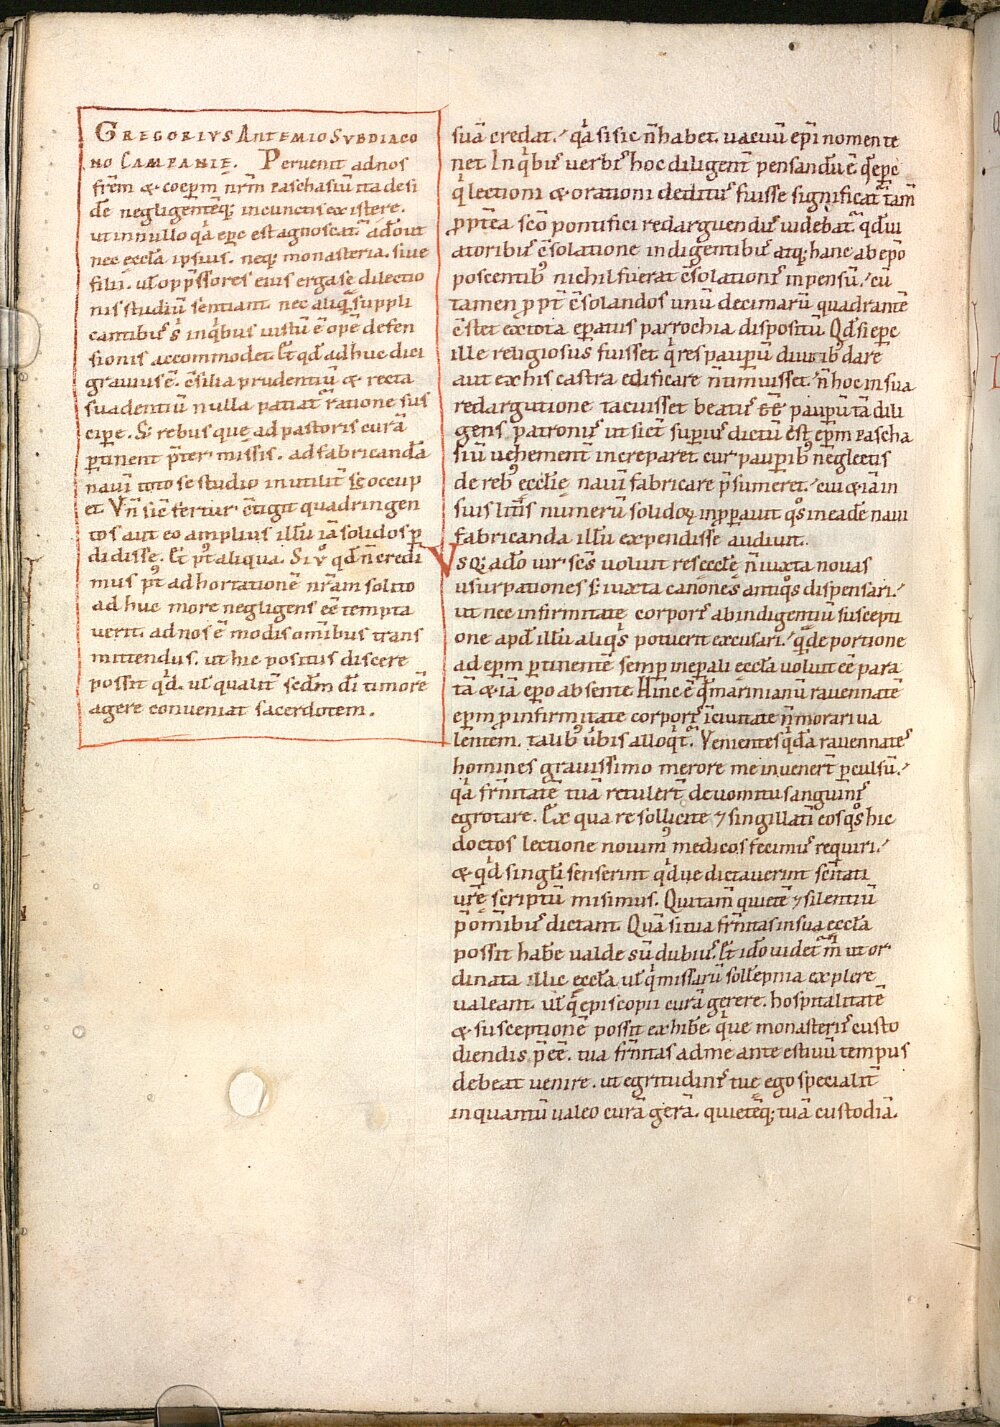 GREGORIVS ANTEMIO SVBDIACO
NO CAMPANIE. Peruenit ad nos
fr̄em & coep̄m nr̄m paschasiū ita desi
dē negligentēq; in cunctis existere.
ut in nullo q̄a ep̄c est agnoscat̄. adeo ut
nec eccl̄a ipsius. neq; monasteria. siue
filii. ul̄ opp̄ssores eius erga se dilectio
nis studiū sentiant. nec aliq̄ suppli
cantibus s; in q̄bus iustū ē opē defen
sionis accommodet. Et qd̄ adhuc dici
grauius ē. c̄silia prudentiū & recta
suadentiū nulla patiat̄ ratione sus
cipe. S; rebus que ad pastoris curā
p̄tinent p̄termissis. ad fabricandā
nauī toto se studio inutilit̄ s; occup
et. Vn̄ sic̄ fertur c̄tigit quadringen
tos aut eo amplius illū iā solidos p̄
didisse. Et p̄t aliqua. Si ū qd̄ n̄ credi
mus p̄t adhortationē nr̄am solito
adhuc more negligens eē tempta
uerit. ad nos ē modis om̄ibus trans
mittendus. ut hic positus discere
possit qd̄. ul̄ qualit̄ sedm̄ dī timorē
agere conueniat sacerdotem.
suā credat. q̄a si sic n̄ habet. uacuū ep̄i nomen te
net. In q̄bus uerbis hoc diligent̄ pensandū ē qd̄ ep̄c
q̄ lectioni & orationi deditus fuisse significat̄. tam̄
p̄pt̄ea sc̄o pontifici redarguendus uidebat̄. qd̄ ui
atoribus c̄solatione indigentibus atq; hanc ab ep̄o
poscentibus nichil fuerat c̄solationis inpensū. cū
tamen p̄pt̄ c̄solandos unū decimarū quadrantē
c̄stet ex tota ep̄atus parrochia dispositū. Qd̄ si ep̄c
ille religiosus fuisset q̄ res paupū diuitib; dare
aut ex his castra edificare n̄ timuisset. n̄ hoc in sua
redargutione tacuisset beatus paupū tā dili
gens patronus. ut sict̄ superius dictū est ep̄m pascha
siū uehement̄ increparet cur pauperib; neglectis
de reb; ecclīe nauī fabricare p̄sumeret. cui & iā in
suis litt̄is numerū solidoꝝ inp̄p̄auit q̄s in eadē naui
fabricanda illū expendisse audiuit.
Vsq; adeo uir sc̄s uoluit res eccl̄e n̄ iuxta nouas
usurpationes s; iuxta canones antiq̄s dispensari.
ut nec infirmitate corporis ab indigentiū suscepti
one apd̄ illū aliq̄s potuerit excusari. q̄ de portione
ad ep̄m p̄tinentē semp in ep̄ali eccl̄a uoluit eē para
tā & iā ep̄o absente. Hinc ē qd̄ marinianū rauennatē
ep̄m p̄ infirmitate corporis ī ciuitate n̄ morari ua
lentem. talib; ūbis alloq̄t̄. Venientes q̄dā rauennates
homines grauissimo merore me inuenert̄ p̄culsū.
q̄a fr̄nitatē tuā retulert̄ de uomitu sanguinis
egrotare. Ex qua re sollicite ⁊ singillatī eos q̄s hic
doctos lectione nouimus medicos fecimus requiri.
& qd̄ singl̄i senserint qd̄ue dictauerint sc̄itati
ur̄ę scriptū misimus. Qui tam̄ quietē ⁊ silentiū
p̄ omībus dictant. Quā si tua fr̄nitas in sua eccl̄a
possit habe ualde sū dubius. Et ideo uidet̄ m̄ ut or
dinata illic eccl̄a ul̄ q̄ missarū sollēpnia explere
ualeant. ul̄ q̄ episcopii curā gerere. hospitalitatē
& susceptionē possit exhibe q̄ue monasteriis custo
diendis p̄eē. tua fr̄nitas ad me ante estiuū tempus
debeat uenire. ut egritudinis tue ego specialit̄
in quantū ualeo curā gerā. quietēq; tuā custodiā.